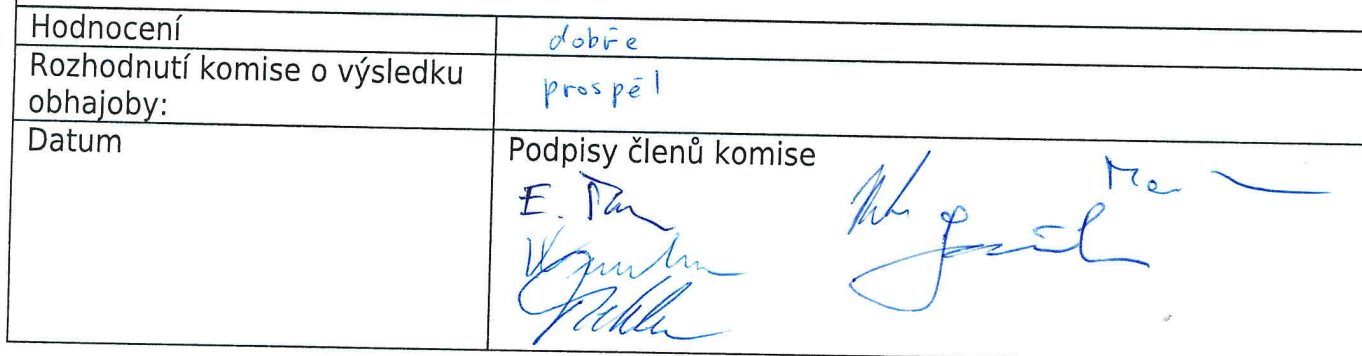 Hodnocení dobře
Rozhodnutí komise o výsledku prospěl
obhajoby:
Datum Podpisy členů komise
E.